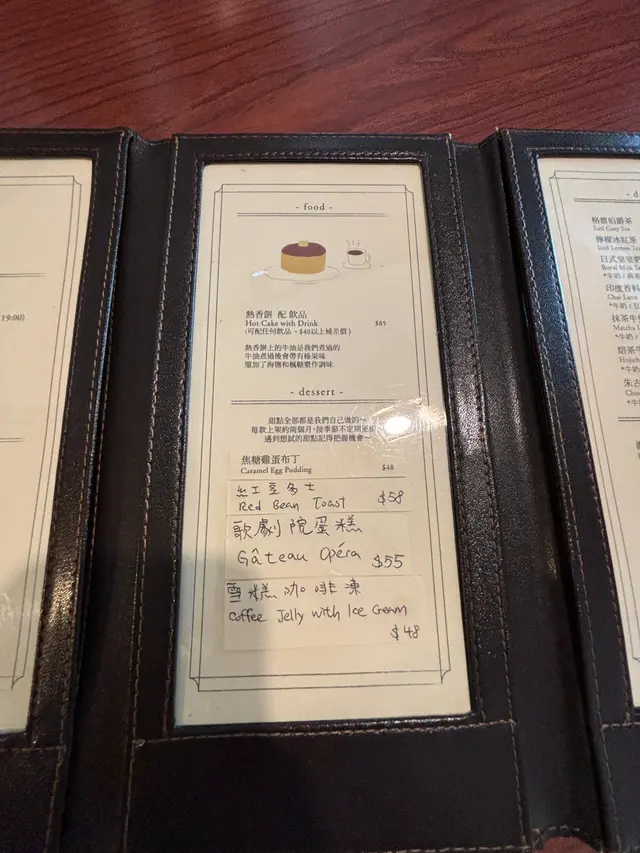 19:00)
- food -
熱香餅 配 飲品
Hot Cake with Drink $85
(可配任何飲品，$40以上補差價)
熱香餅上的牛油是我們煮過的
牛油煮過後會帶有榛果味
還加了海鹽和楓糖漿作調味
- dessert -
甜點全部都是我們自己做的~
每款上架約兩個月，按季節不定期更
遇到想試的甜點記得把握機會~
焦糖雞蛋布丁
Caramel Egg Pudding $48
紅豆多士
Red Bean Toast $58
歌劇院蛋糕
Gâteau Opéra $55
雪糕咖啡凍
Coffee Jelly with Ice Cream
$48
- d
格雷伯爵茶
Earl Grey Tea
檸檬冰紅茶
Iced Lemon Tea
日式皇室奶
Royal Milk Te
*牛奶 / 燕麥
印度香料
Chai Latte
*牛奶 / 豆
抹茶牛
Matcha
*牛奶 /
焙茶牛
Hojich
*牛奶
朱古
Choc
*牛